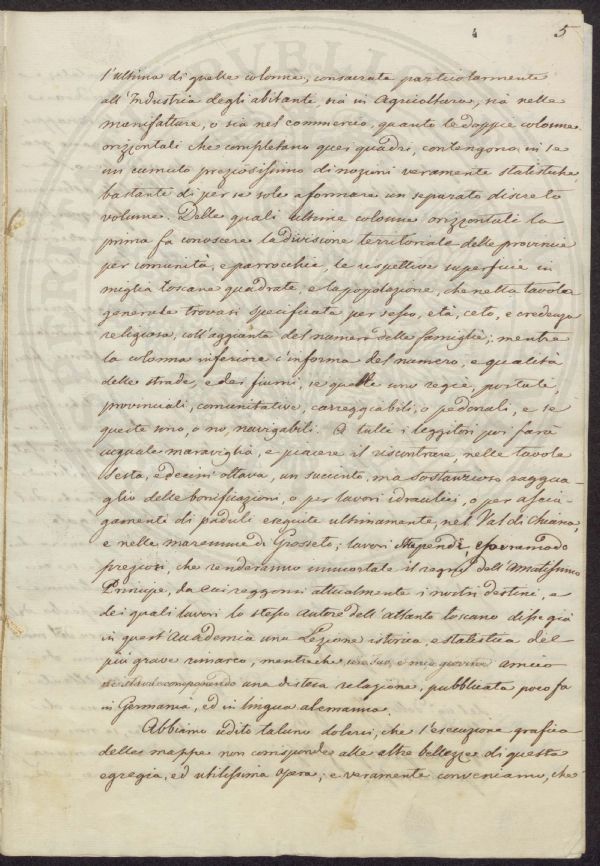 4 5
l'ultima di quelle colonne, consacrata particolarmente
all'Industria degli abitanti, sia in Agricoltura, sia nelle
manifatture, o sia nel commercio, quanto le doppie colonne
orizzontali che completano quei quadri, contengono in se
un cumulo preziosissimo di nozioni veramente statistiche
bastante di per se sole a formare un separato discreto
volume. Delle quali ultime colonne orizzontali la
prima fa conoscere la divisione territoriale delle provincie
per comunità, e parrocchie, le rispettive superficie in
miglia toscane quadrate, e la popolazione, che nella tavola
generale trovasi specificata per sesso, età, ceto, e credenza
religiosa, coll'aggiunta del numero delle famiglie; mentre
la colonna inferiore c'informa del numero, e qualità
delle strade, e dei fiumi, se quelle sono regie, postali,
provinciali, comunitative, carreggiabili, o pedonali, e se
questi sono, o no, navigabili. A tutti i leggitori poi farà
uguale maraviglia, e piacere il riscontrare, nelle tavole
sesta, e decimottava, un succinto, ma sostanzioso raggua-
glio delle bonificazioni, o per lavori idraulici, o per asciu-
gamenti di paduli eseguite ultimamente, nel Val di Chiana,
e nella maremma di Grosseto; lavori stupendi, e sovramodo
pregiosi, che renderanno immortale il regno dell'Amatissimo
Principe, da cui reggonsi attualmente i nostri destini, e
dei quali lavori lo stesso autore dell'atlante toscano disse già
in quest'Accademia una Lezione istorica, e statistica del
più grave rimarco, mentreche un suo, e mio giovine amico
ne stava componendo una distesa relazione, pubblicata poco fa
in Germania, ed in lingua alemanna.
Abbiamo udito taluno dolersi, che l'esecuzione grafica
delle mappe non corrisponde alle altre bellezze di questa
egregia, ed utilissima opera; e veramente conveniamo, che